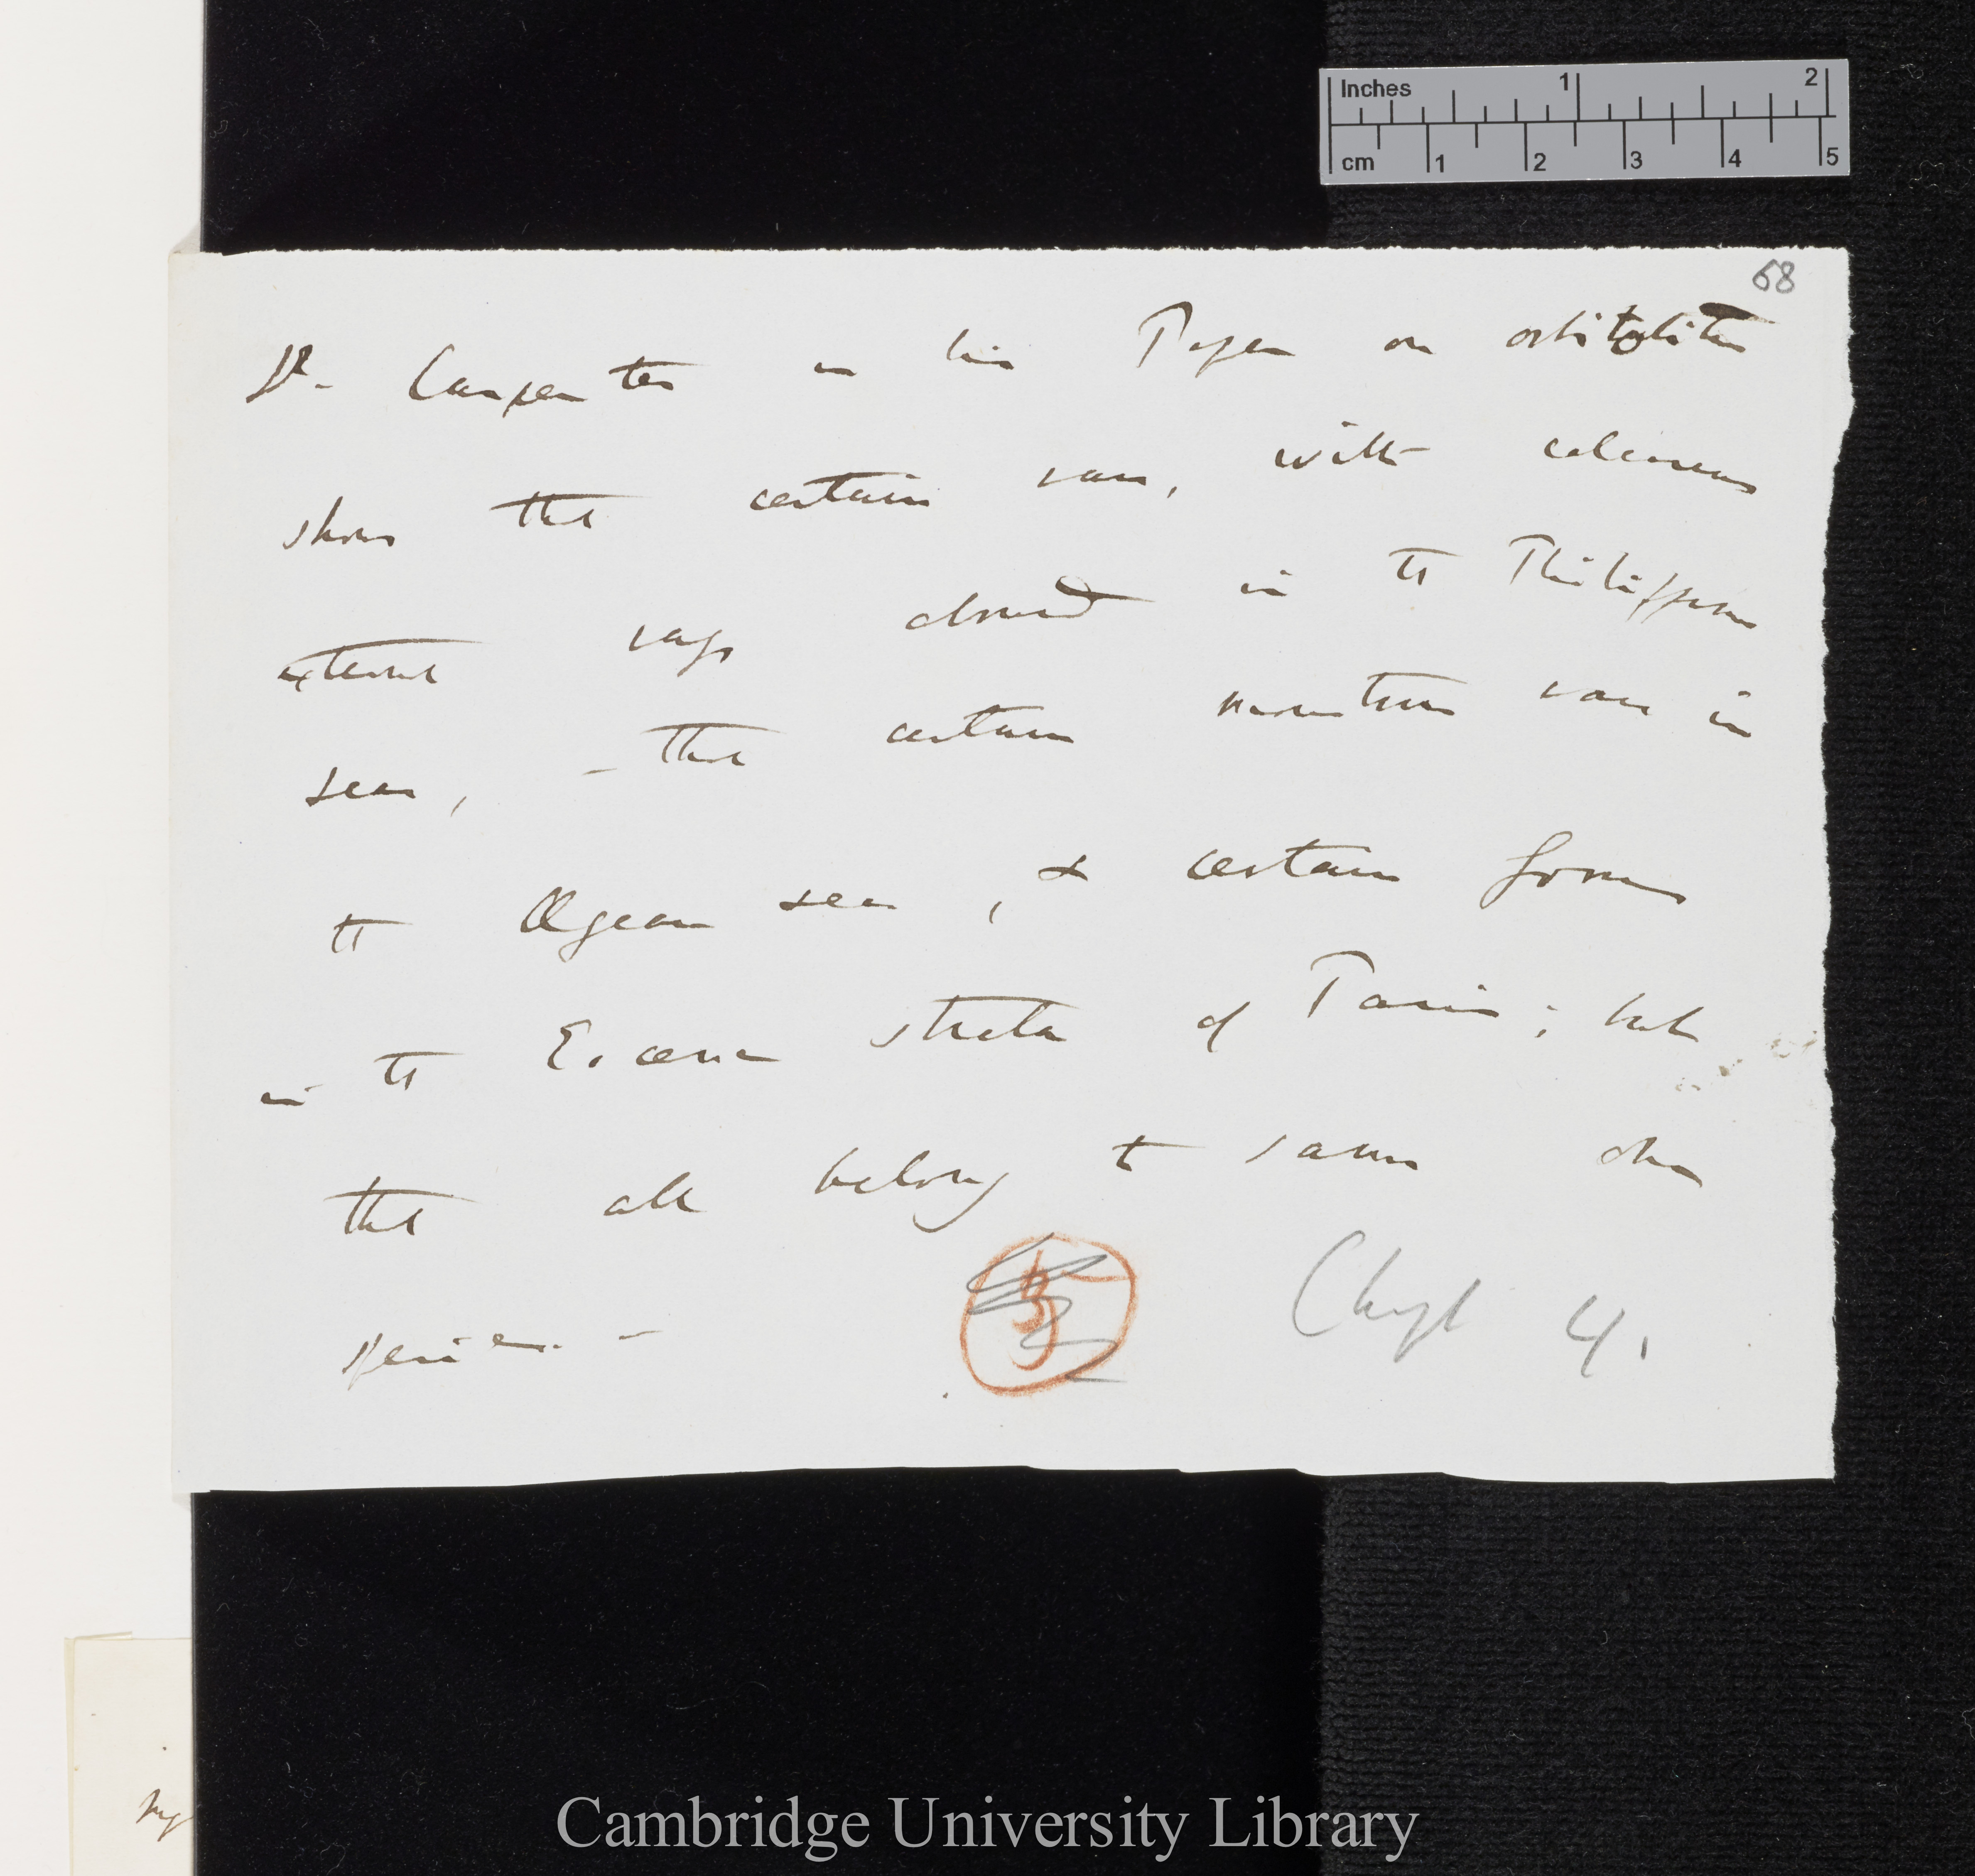 68
Dr. Carpenter in his Paper on orbitolites
shows that certain vars, with
external abound in the Philippine
seas, – that certain monstrous vars in
the Ægean sea, & certain forms
in the Eocene strata of Paris; but
that all belong to same one
species. –
Ch 4.
Inches 1 2
cm 1 2 3 4 5
Cambridge University Library